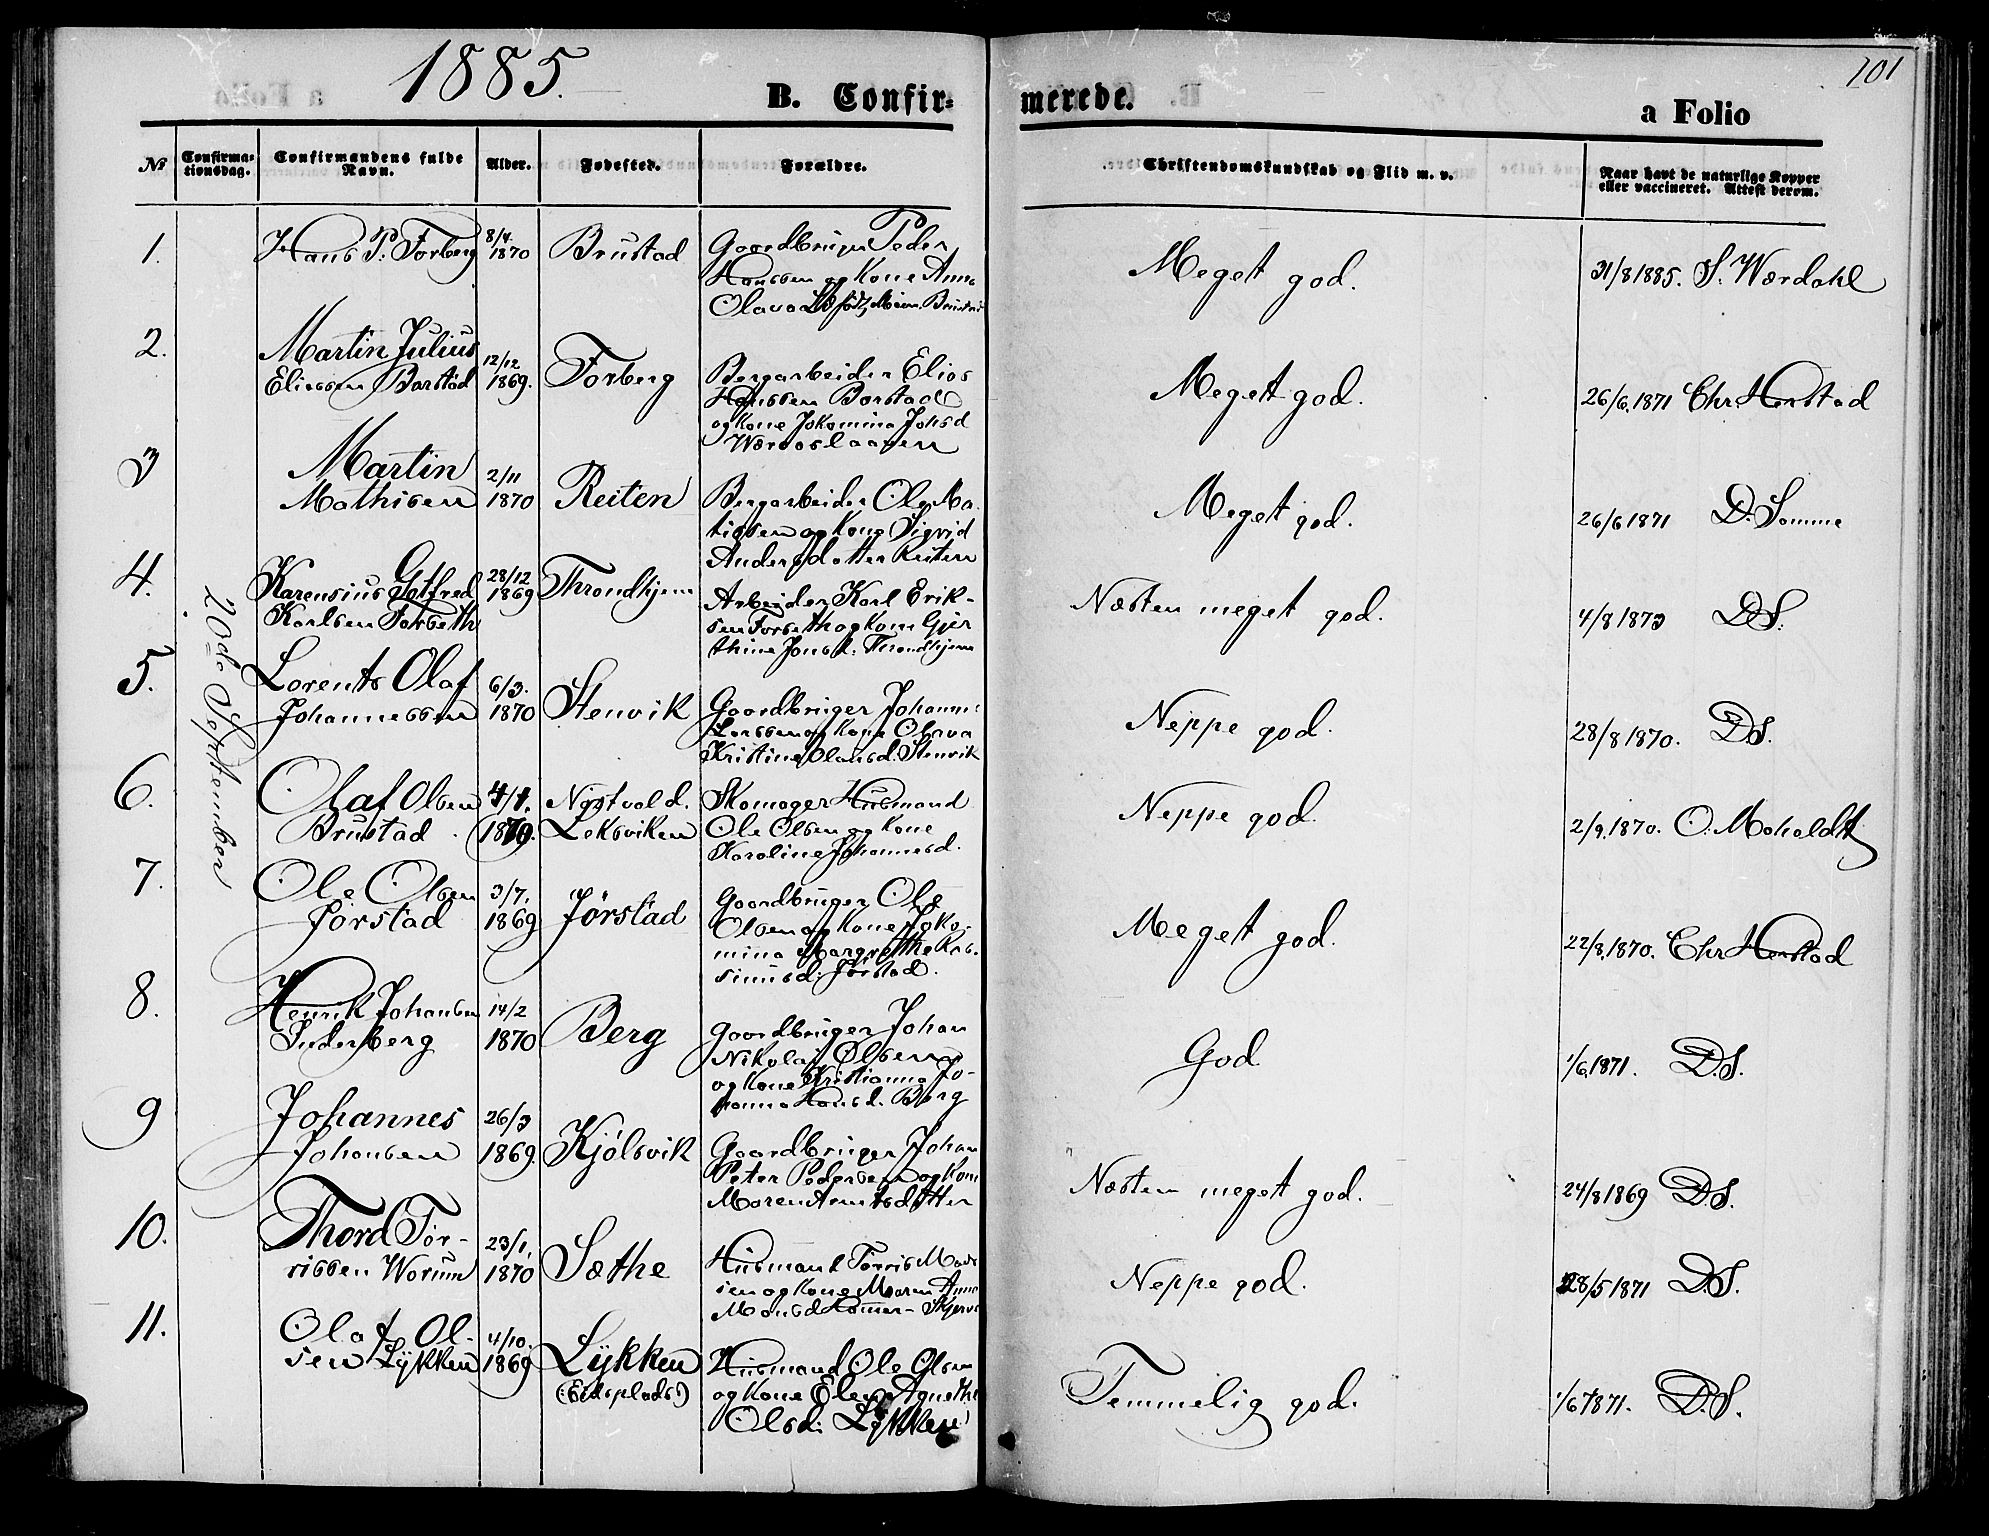 1885.
B. Confir-
merede.
101
a Folio
No
Confirma-
tionsdag.
Confirmandens fulde
Navn.
Alder.
Fødested.
Forældre.
Christendomskundskab og Flid m. v.
Naar havt de naturlige Kopper
eller vaccineret. Attest derom.
20de September
1.
Hans P. Forberg
8/4.
1870
Brustad
Gaardbruger Peder
Hanssen og Kone Anna
Olava
Meget god.
31/8 1885. S. Wærdahl
2.
Martin Julius
Eliassen Barstad
12/12
1869.
Forberg
Bergarbeider Elias
Hanssen Barstad
og Kone Jakomina Johsd
Meget god.
26/6. 1871 Chr. Herstad
3
Martin
Mathisen
2/11
1870
Reiten
Bergarbeider Ole Ma-
tissen og Kone Sigrid
Andersdatter Reiten
Meget god.
26/6 1871 D. Somme
4.
Karensius Gotfred
Karlsen Forseth
28/12
1869
Throndhjem
Arbeider Karl Erik-
sen Forseth og Kone Gjer
thine Jonsd. Throndhjem
Næsten meget god.
4/8 1873 D.S.
5.
Lorents Olaf
Johannessen
6/3.
1870
Stenvik
Gaardbruger Johann
Larssen og Kone Olava
Kristine Olausd. Stenvik
Neppe god.
28/8 1870. D.S.
6.
Olaf Olsen
Brustad.
4/1.
1870.
Nøstvold.
Leksviken
Skomager Husmand
Ole Olsen og Kone
Karoline Johannesd.
Neppe god.
2/9. 1870. O. Moholdt
7.
Ole Olsen
Jørstad
3/7.
1869
Jørstad
Gaardbruger Ole
Olsen og Kone Jako-
mina Margrethe Ras-
simusd. Jørstad.
Meget god.
22/8. 1870. Chr Herstad
8.
Henrik Johansen
Inderberg
14/2
1870
Berg
Gaardbruger Johan
Nikolai Olsen
og Kone Kristianna Jo-
hanna Hansd. Berg
God
1/6. 1871. D.S.
9
Johannes
Johansen
26/3
1869.
Kjølsvik
Gaardbruger Johan
Peter Pedersen og Kone
Maren Arntsdatter
Næsten meget god.
24/8 1869 D.S.
10.
Thord Tor-
rissen Worum
23/1.
1870
Sæthe
Husmand Torris Mad
sen og Kone Maren Anna
Monsd
Neppe god.
28/5 1871 D.S.
11.
Olaf Ol-
sen Lykken
4/10.
1869
Lykken
(:Eidsplads:)
Husmand Ole Olsen
og Kone Elen Agnethe
Olsd. Lykken
Temmelig god.
1/6 1871. D.S.